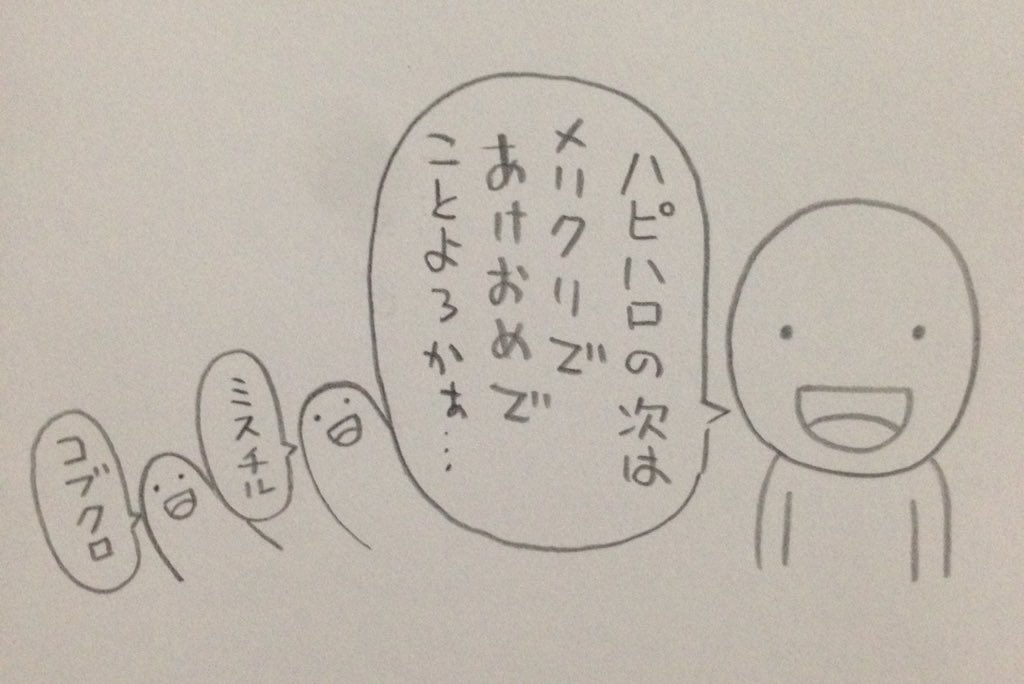 ハピハロの次は
メリクリで
あけおめで
ことよろかぁ…
ミスチル
コブクロ